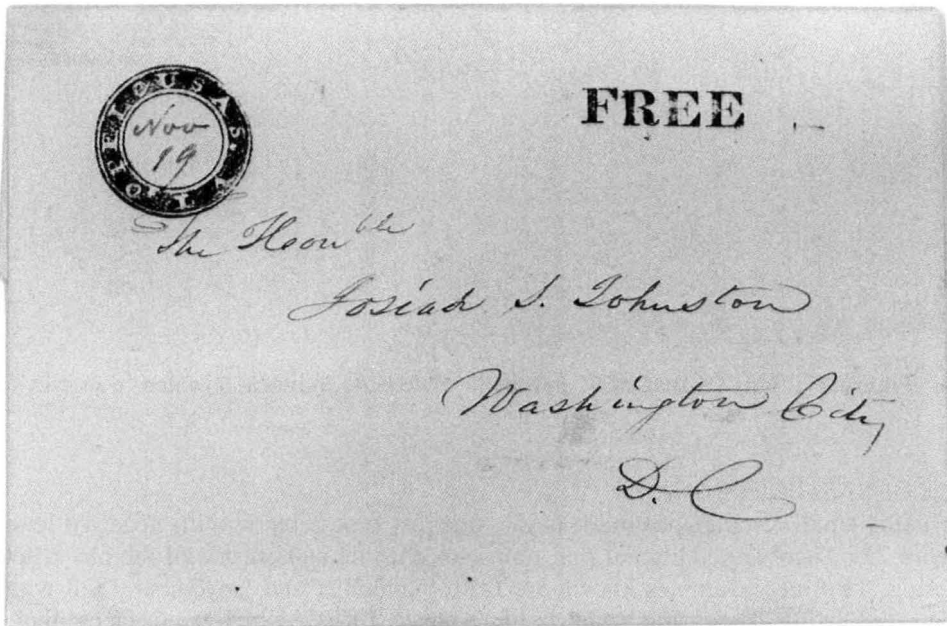 OPELOUSAS. LA.
Nov
19
FREE
The Honble
Josiah S. Johnston
Washington City
D. C